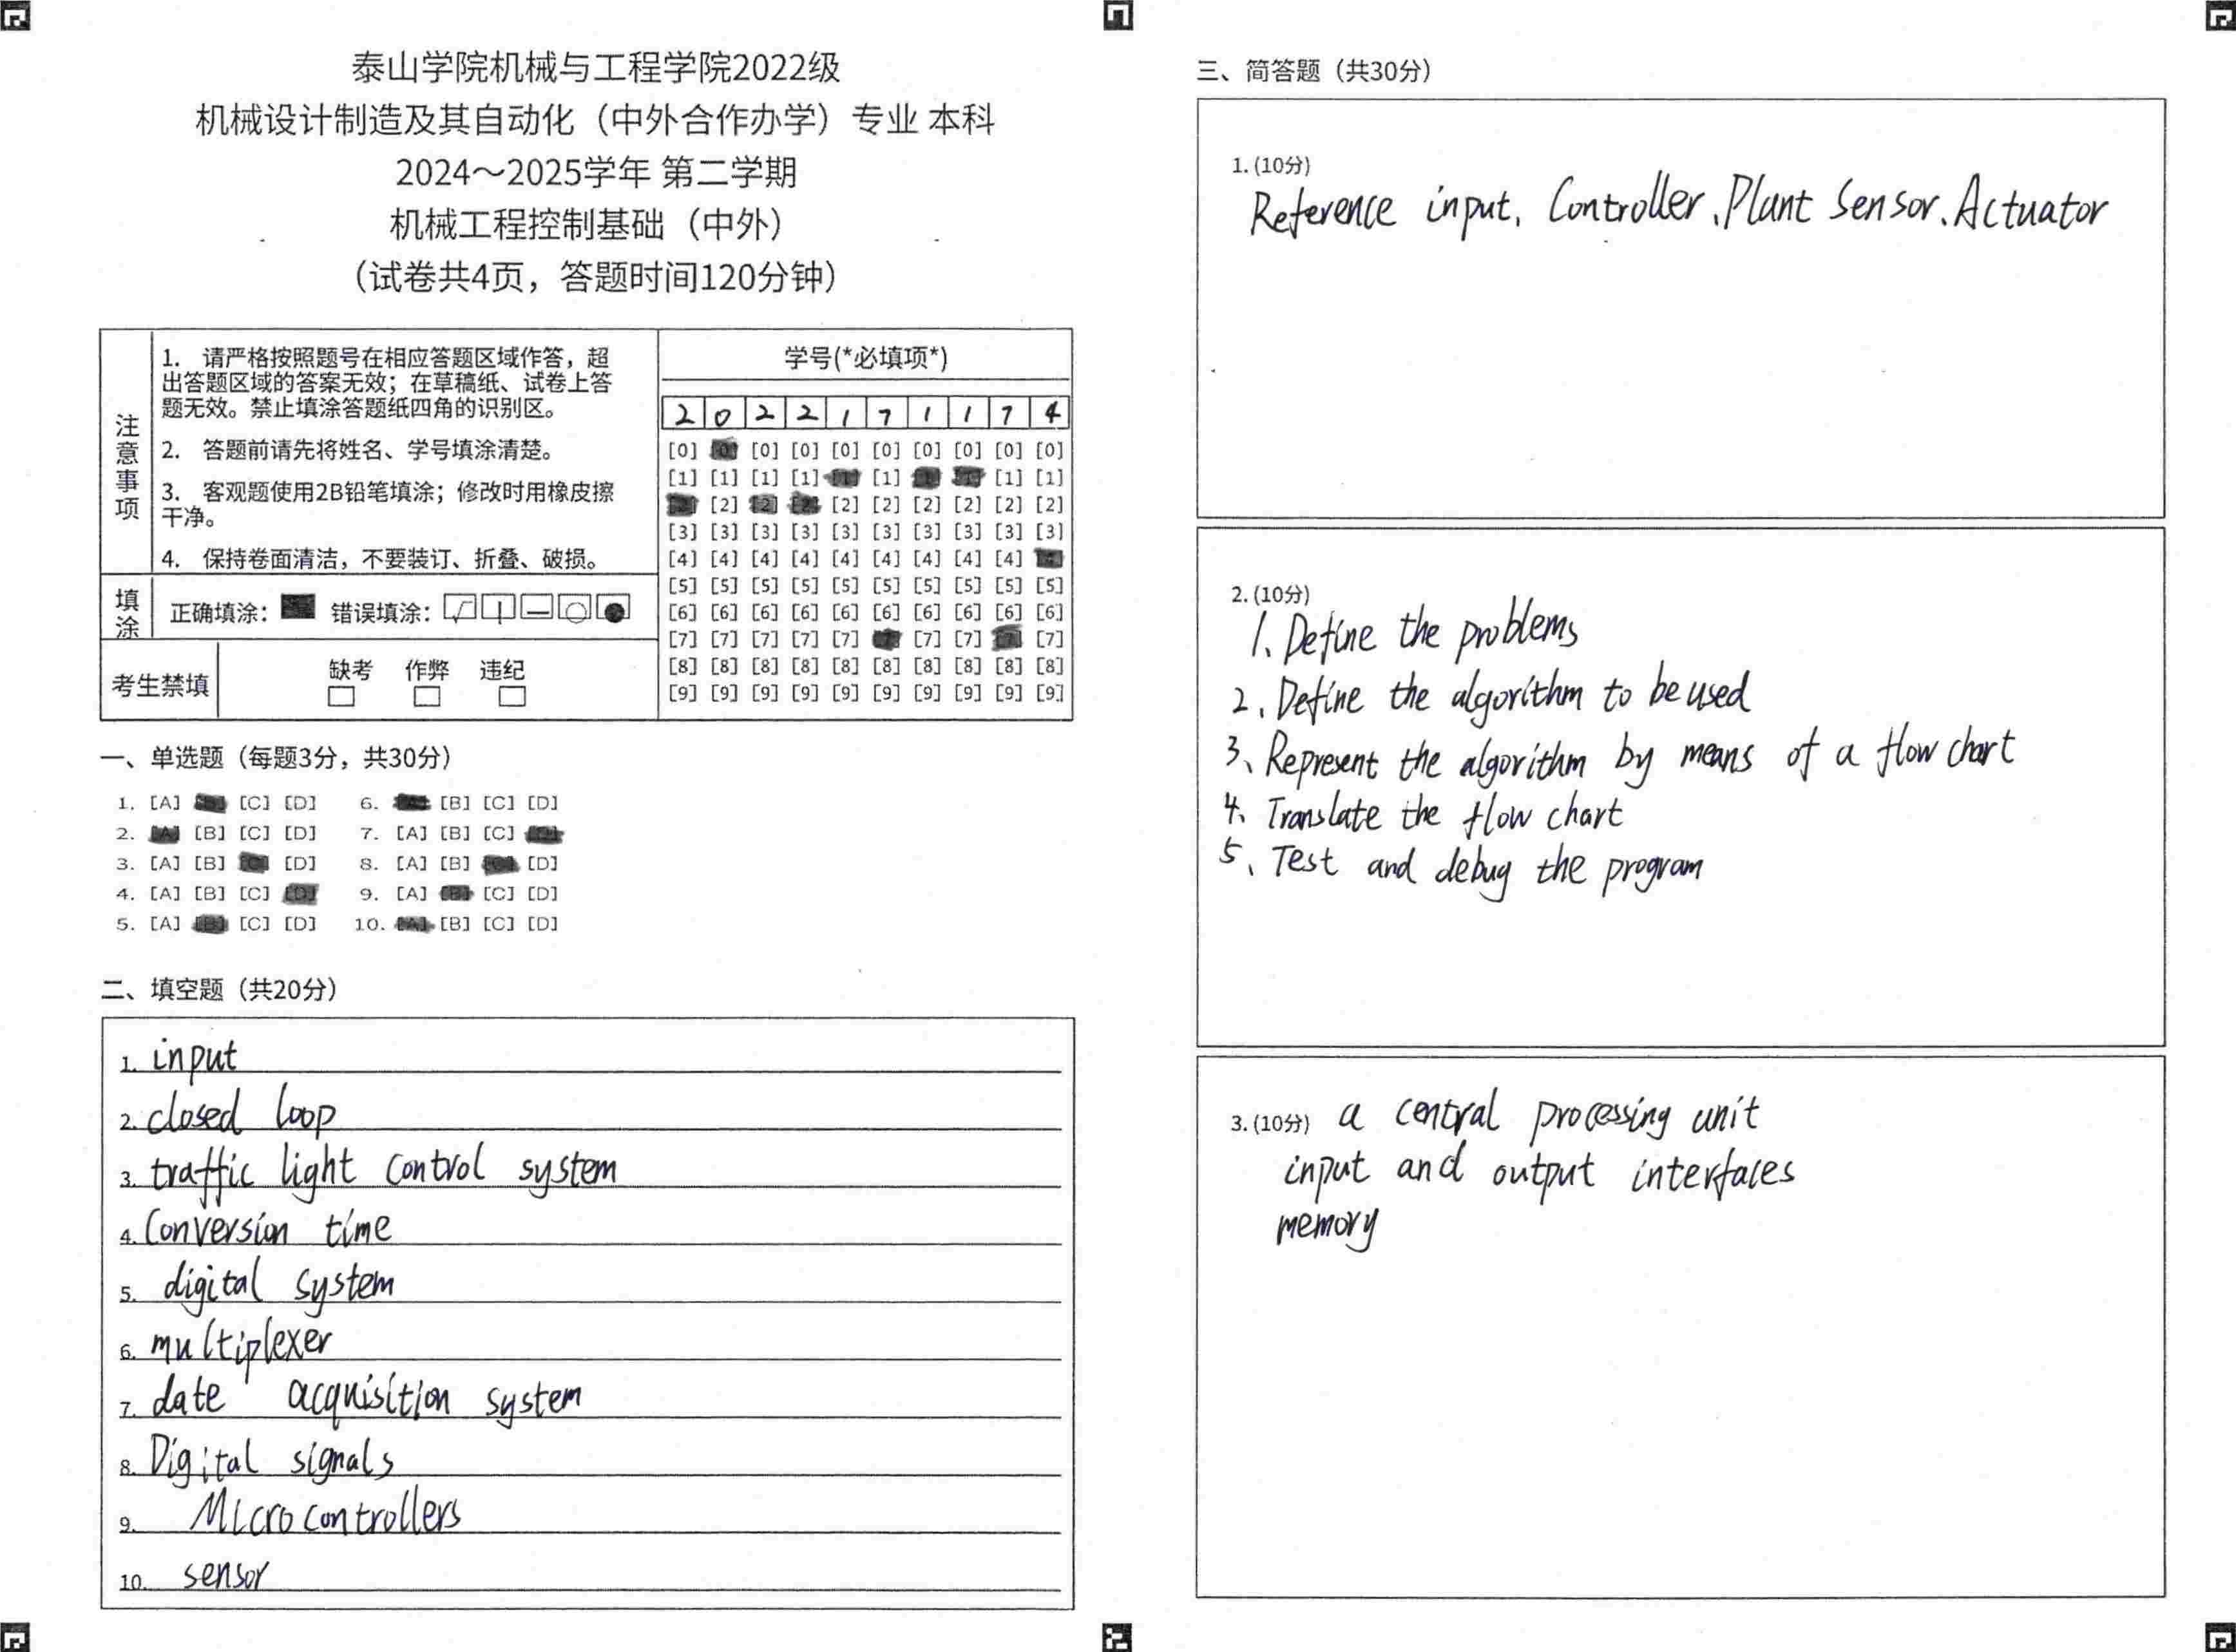 泰山学院机械与工程学院2022级
机械设计制造及其自动化（中外合作办学）专业 本科
2024～2025学年 第二学期
机械工程控制基础（中外）
（试卷共4页，答题时间120分钟）
注意事项
1. 请严格按照题号在相应答题区域作答，超
出答题区域的答案无效；在草稿纸、试卷上答
题无效。禁止填涂答题纸四角的识别区。
2. 答题前请先将姓名、学号填涂清楚。
3. 客观题使用2B铅笔填涂；修改时用橡皮擦
干净。
4. 保持卷面清洁，不要装订、折叠、破损。
填涂
正确填涂： 错误填涂：
考生禁填
缺考 作弊 违纪
学号(*必填项*)
2 0 2 2 1 7 1 1 7 4
[0] [0] [0] [0] [0] [0] [0] [0] [0] [0]
[1] [1] [1] [1] [1] [1] [1] [1] [1] [1]
[2] [2] [2] [2] [2] [2] [2] [2] [2] [2]
[3] [3] [3] [3] [3] [3] [3] [3] [3] [3]
[4] [4] [4] [4] [4] [4] [4] [4] [4] [4]
[5] [5] [5] [5] [5] [5] [5] [5] [5] [5]
[6] [6] [6] [6] [6] [6] [6] [6] [6] [6]
[7] [7] [7] [7] [7] [7] [7] [7] [7] [7]
[8] [8] [8] [8] [8] [8] [8] [8] [8] [8]
[9] [9] [9] [9] [9] [9] [9] [9] [9] [9]
一、单选题（每题3分，共30分）
1. [A] [B] [C] [D] 6. [A] [B] [C] [D]
2. [A] [B] [C] [D] 7. [A] [B] [C] [D]
3. [A] [B] [C] [D] 8. [A] [B] [C] [D]
4. [A] [B] [C] [D] 9. [A] [B] [C] [D]
5. [A] [B] [C] [D] 10. [A] [B] [C] [D]
二、填空题（共20分）
1. input
2. closed loop
3. traffic light control system
4. Conversion time
5. digital system
6. multiplexer
7. date acquisition system
8. Digital signals
9. Microcontrollers
10. sensor
三、简答题（共30分）
1. (10分)
Reference input, Controller、Plant Sensor、Actuator
2. (10分)
1、Define the problems
2、Define the algorithm to be used
3、Represent the algorithm by means of a flow chart
4、Translate the flow chart
5、Test and debug the program
3. (10分) a central processing unit
input and output interfaces
memory